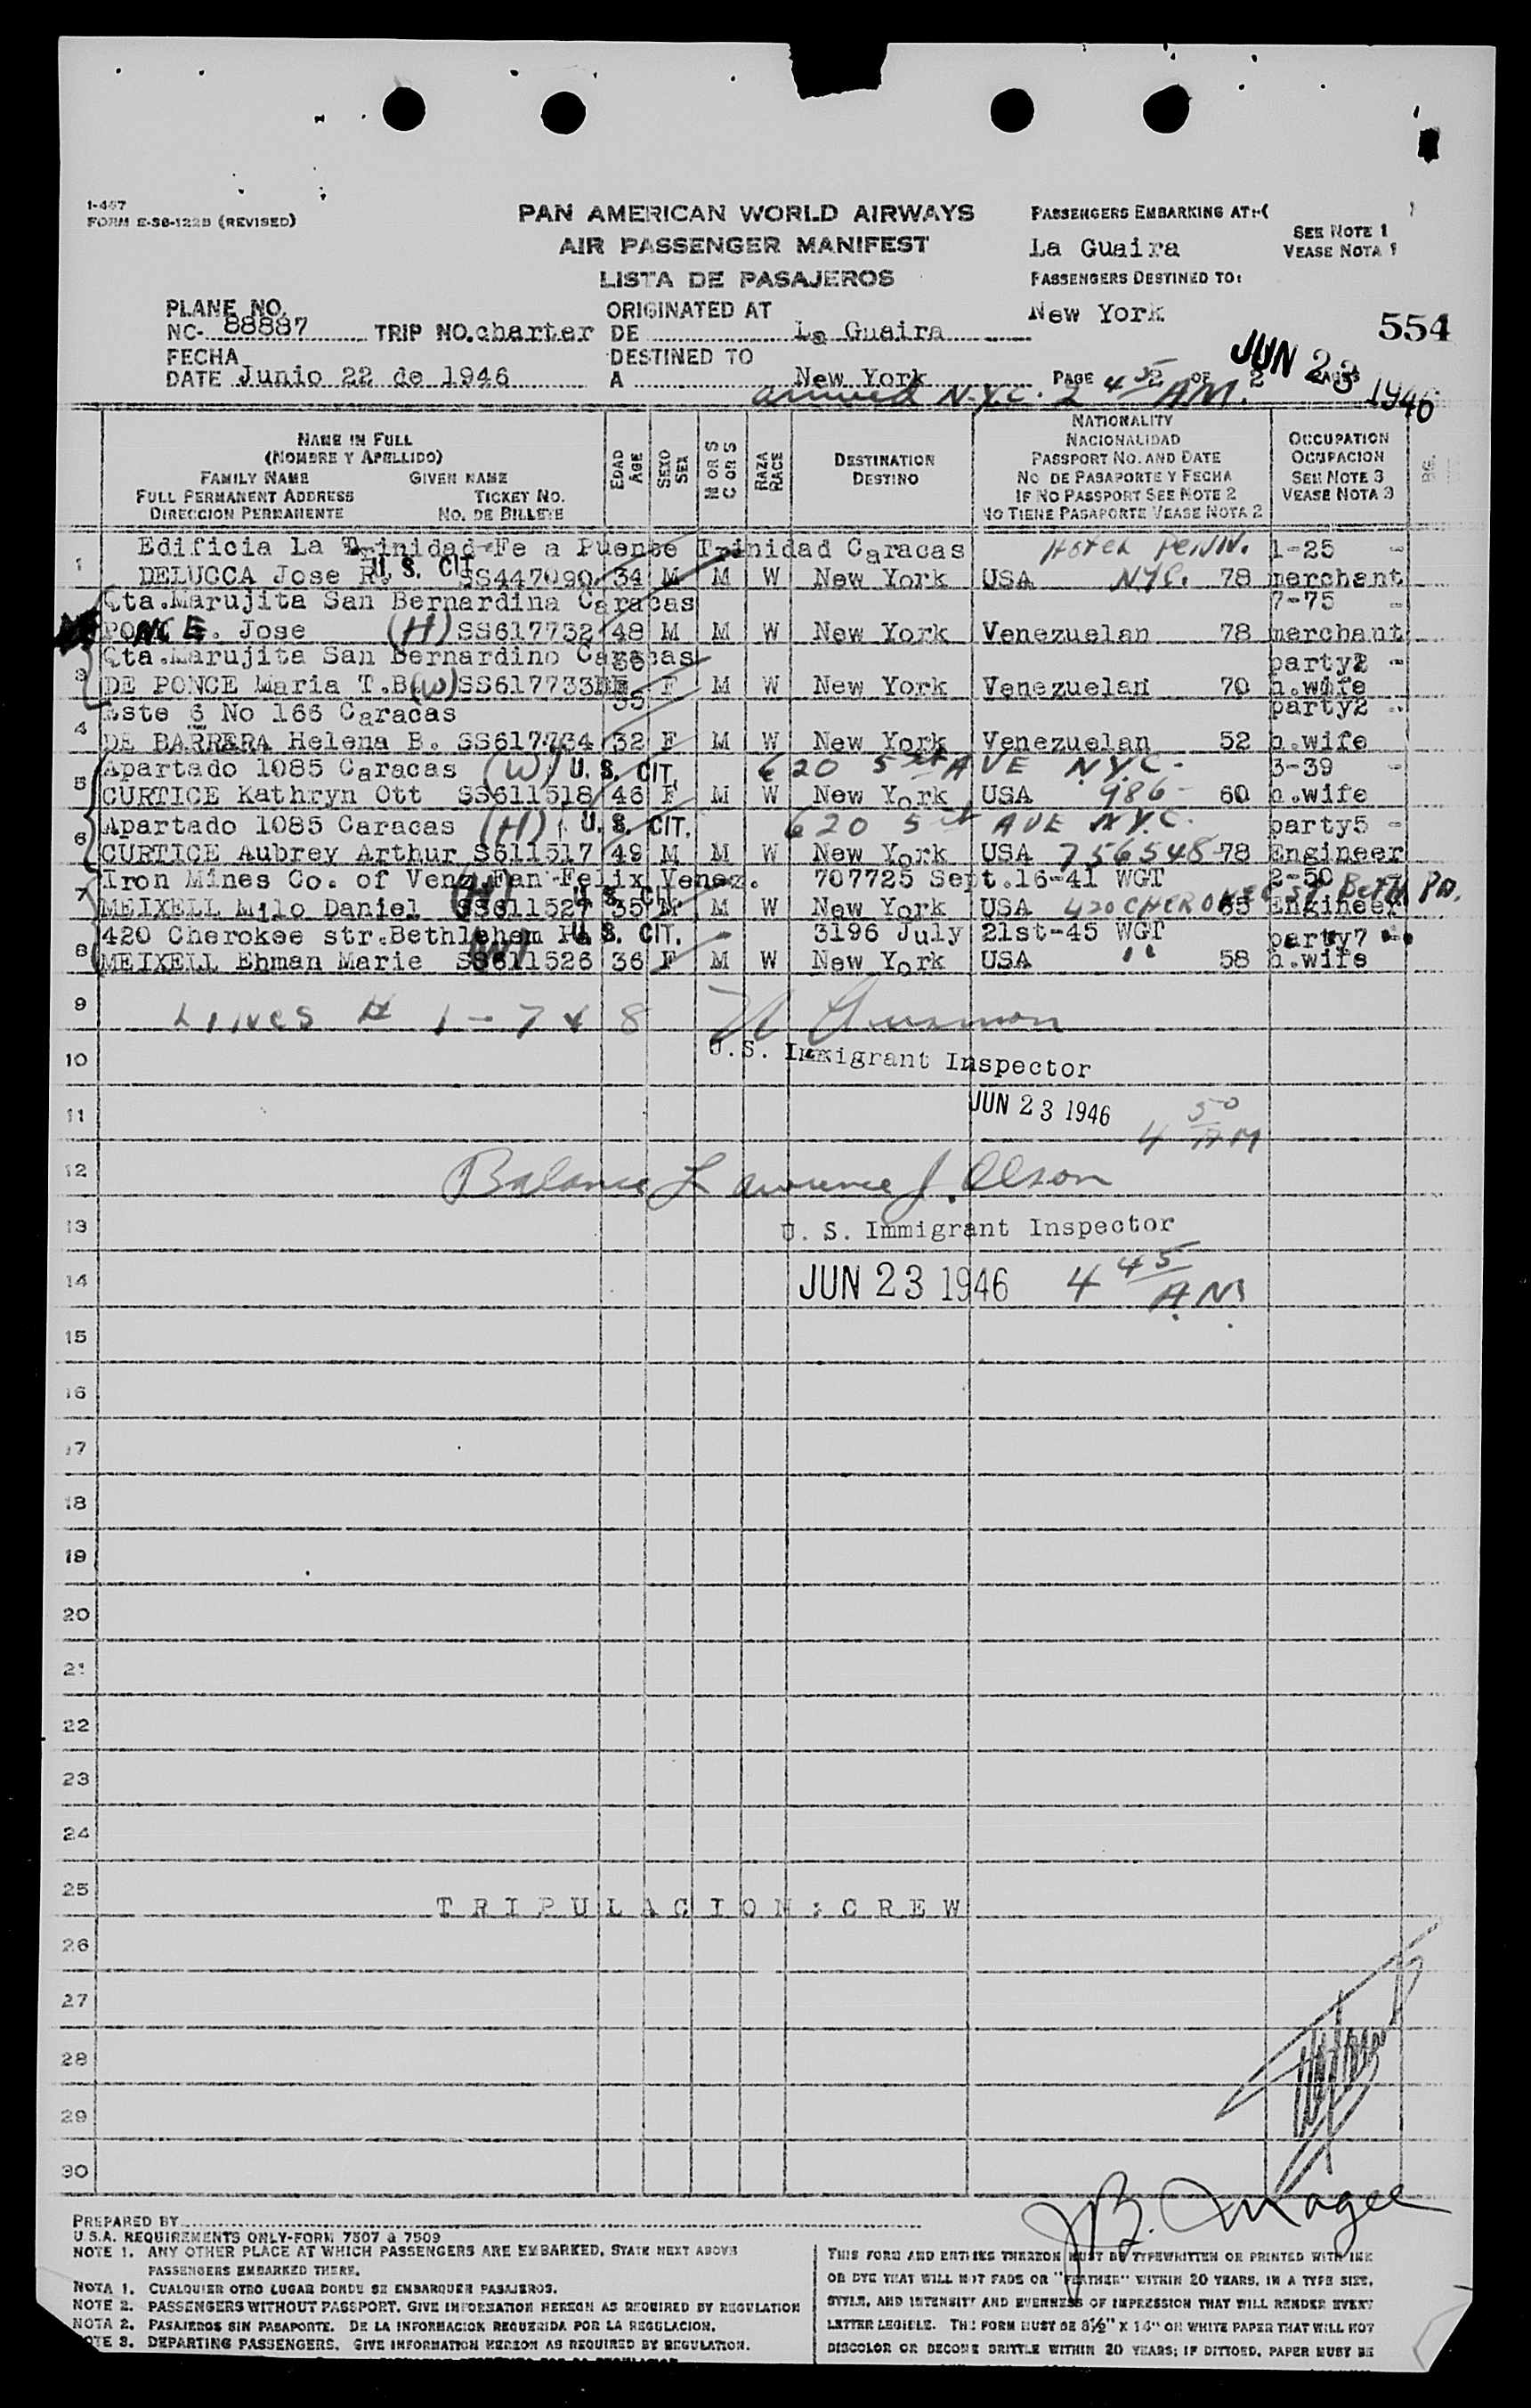 1-467
FORM E-36-122B (REVISED)
PAN AMERICAN WORLD AIRWAYS
AIR PASSENGER MANIFEST
LISTA DE PASAJEROS
PASSENGERS EMBARKING AT:-(
La Guaira
SEE NOTE 1
VEASE NOTA 1
PASSENGERS DESTINED TO:
New York
554
PLANE NO.
NC- 88887 TRIP NO. charter
ORIGINATED AT
DE La Guaira
FECHA
DATE Junio 22 de 1946
DESTINED TO
A New York
PAGE 2 OF 2 PAGES
JUN 23 1946
arrived N.Y.C. 4 35 A.M.
NAME IN FULL
(NOMBRE Y APELLIDO)
FAMILY NAME GIVEN NAME
FULL PERMANENT ADDRESS TICKET NO.
DIRECCION PERMANENTE NO. DE BILLETE
EDAD AGE
SEXO SEX
M OR S C OR S
RAZA RACE
DESTINATION
DESTINO
NATIONALITY
NACIONALIDAD
PASSPORT NO. AND DATE
NO DE PASAPORTE Y FECHA
IF NO PASSPORT SEE NOTE 2
NO TIENE PASAPORTE VEASE NOTA 2
OCCUPATION
OCUPACION
SEE NOTE 3
VEASE NOTA 3
Edificia La Trinidad-Fe a Puente Trinidad Caracas Hotel Penn. 1-25 -
1 DELUCCA Jose R. U. S. CIT. SS447090 34 M M W New York USA N.Y.C. 78 merchant
Qta.Marujita San Bernardina Caracas 7-75 -
PONCE. Jose (H) SS617732 48 M M W New York Venezuelan 78 merchant
Qta.Marujita San Bernardino Caracas party2 -
3 DE PONCE Maria T.B. (W) SS617733 F M W New York Venezuelan 70 h.wife
Este 6 No 166 Caracas party2 -
4 DE BARRERA Helena B. SS617734 32 F M W New York Venezuelan 52 h.wife
Apartado 1085 Caracas (W) U. S. CIT. 620 5th AVE N.Y.C. 3-39 -
5 CURTICE Kathryn Ott SS611518 46 F M W New York USA 986- 60 h.wife
Apartado 1085 Caracas (H) U. S. CIT. 620 5th AVE N.Y.C. party5 -
6 CURTICE Aubrey Arthur S611517 49 M M W New York USA 756548- 78 Engineer
Iron Mines Co. of Venz. Fan Felix Venez. 707725 Sept.16-41 WGT 2-50
7 MEIXELL Milo Daniel (H) SS611527 U. S. CIT. 35 M M W New York USA 420 CHEROKEE ST BETH PA. 65 Engineer
420 Cherokee str.Bethlehem Pa U. S. CIT. 3196 July 21st-45 WGT party7
8 MEIXELL Ehman Marie (W) SS611526 36 F M W New York USA " 58 h.wife
9 Lines # 1-7 & 8
10 U.S. Immigrant Inspector
11 JUN 23 1946 4 50 AM
12 Balance Lawrence J. Olson
13 U. S. Immigrant Inspector
14 JUN 23 1946 4 45 A.M.
15
16
17
18
19
20
21
22
23
24
25 TRIPULACION:CREW
26
27
28
29
30
J.B. Magee
PREPARED BY
U.S.A. REQUIREMENTS ONLY-FORM 7507 & 7509
NOTE 1. ANY OTHER PLACE AT WHICH PASSENGERS ARE EMBARKED, STATE NEXT ABOVE
PASSENGERS EMBARKED THERE.
NOTA 1. CUALQUIER OTRO LUGAR DONDE SE EMBARQUEN PASAJEROS.
NOTE 2. PASSENGERS WITHOUT PASSPORT, GIVE INFORMATION HEREON AS REQUIRED BY REGULATION
NOTA 2. PASAJEROS SIN PASAPORTE. DE LA INFORMACION REQUERIDA POR LA REGULACION.
NOTE 3. DEPARTING PASSENGERS. GIVE INFORMATION HEREON AS REQUIRED BY REGULATION.
THIS FORM AND ENTRIES THEREON MUST BE TYPEWRITTEN OR PRINTED WITH INK
OR DYE THAT WILL NOT FADE OR "FEATHER" WITHIN 20 YEARS, IN A TYPE SIZE,
STYLE, AND INTENSITY AND EVENNESS OF IMPRESSION THAT WILL RENDER EVERY
LETTER LEGIBLE. THE FORM MUST BE 8½" X 14" ON WHITE PAPER THAT WILL NOT
DISCOLOR OR BECOME BRITTLE WITHIN 20 YEARS; IF DITTOED, PAPER MUST BE